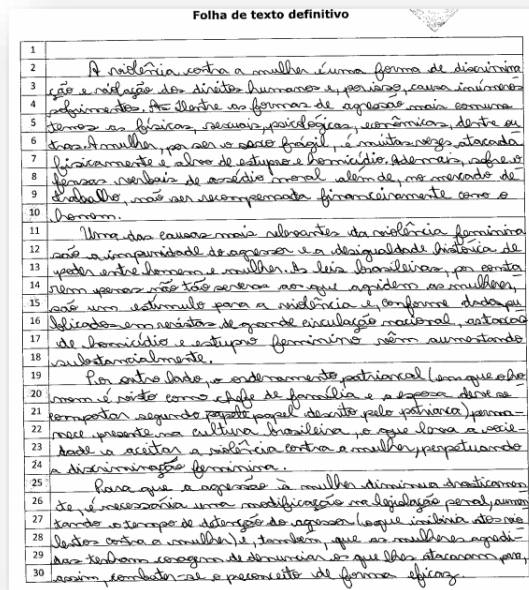 Folha de texto definitivo
1
2 A violência contra a mulher é uma forma de discrimina
3 ção e violação dos direitos humanos e, por isso, causa inúmeros
4 sofrimentos. Dentre as formas de agressão mais comuns
5 temos as físicas, sexuais, psicológicas, econômicas, dentre ou
6 tras. A mulher, por ser o sexo frágil, é muitas vezes atacada
7 fisicamente e alvo de estupro e homicídio. Ademais, sofre o
8 fensas verbais de assédio moral além de, no mercado de
9 trabalho, não ser recompensada financeiramente como o
10 homem.
11 Uma das causas mais relevantes da violência feminina
12 são a impunidade do agressor e a desigualdade histórica de
13 poder entre homem e mulher. As leis brasileiras, por conta
14 rem penas não tão severas aos que agridem as mulheres,
15 são um estímulo para a violência e, conforme dados pu
16 blicados em revistas de grande circulação nacional, as taxas
17 de homicídio e estupro feminino vêm aumentando
18 substancialmente.
19 Por outro lado, o ordenamento patriarcal (em que o ho
20 mem é visto como chefe de família e a esposa deve se
21 comportar segundo papel descrito pelo patriarca), perma-
22 nece presente na cultura brasileira, o que leva a socie-
23 dade a aceitar a violência contra a mulher, perpetuando
24 a discriminação feminina.
25 Para que a agressão à mulher diminua drasticamen
26 te, é necessária uma modificação na legislação penal, aumen
27 tando o tempo de detenção do agressor (o que inibiria atos vio
28 lentos contra a mulher) e, também, que as mulheres agredi-
29 das tenham coragem de denunciar os que lhes atacaram para,
30 assim, combater-se o preconceito de forma eficaz.